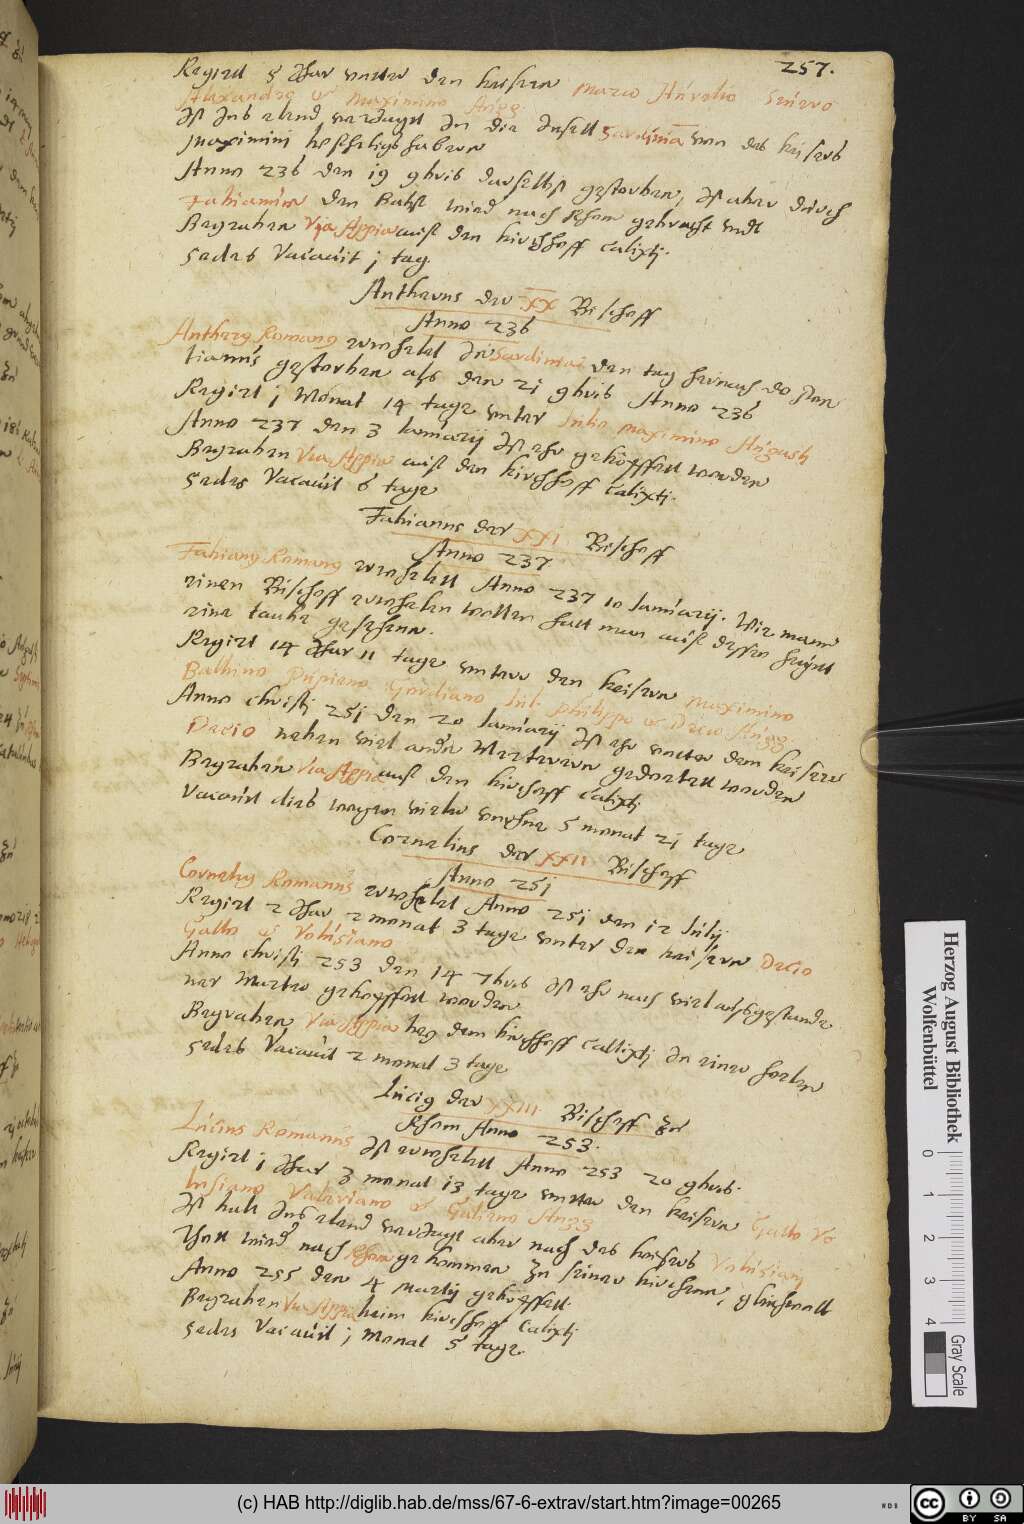 257.
Regiert 5 Jhar vnter den keisern Marco Aurelio Seuero
Alexandro et Maximino Augg.
Jst Jns elend veriagtt Jn die Jnsell Sardinia von des keisers
Maximini befehligshabern
Anno 236 den 19 9bris daselbst gestorben, Jst aber durch
Fabianum den Babst wied nach Rhom gebracht vndt
Begraben Via Appia auff den kirchhoff Calixtj.
Sedes Vacauit j tag.
Antherus der XX Bischoff
Anno 236
Antherus Romanus erwehelet Jn Sardinia den tag hernach do Pon
tianus gestorben als den 21 9bris Anno 236
Regirt j Monat 14 tage vnter Julio Maximino Augusto
Anno 237 den 3 Januarij Jst ehr geköpffett worden
Begraben Via Appia auff den kirchhoff Calixtj.
Sedes Vacauit 6 tage
Fabianus der XXI Bischoff
Anno 237
Fabianus Romanus erwehelett Anno 237 10 Januarij. Wie mann
einen Bischoff erwehelen wollen hatt man auff dessen heupt
eine taube gesehenn.
Regirt 14 Jhar 11 tage vnter den keisern Maximino
Balbino Pupieno Gordiano Jul. Philippo et Decio Augg.
Anno Christj 251 den 20 Januarij Jst ehr vnter dem keiser
Decio neben viel andn Marterern getoetett worden
Begraben Via Appia auff den kirchoff Calixtj
Vacauit dies wegen vieler vnruhe 5 monat 21 tage
Cornelius der XXII Bischoff
Anno 251
Cornelius Romanus erwehelet Anno 251 den 12 Julij
Regirt 2 Jhar 2 monat 3 tage vnter den keisern Decio
Gallo et Volusiano
Anno Christi 253 den 14 7bris Jst ehr nach viel ausgestande
ner Marter gekopffett worden
Begraben Via Appia beg dem kirchhoff Callixtj Jn einer hoelen
Sedes Vacauit 2 monat 3 tage
Lucius der XXIII. Bischoff Zu
Rhom Anno 253.
Lucius Romanus Jst erwehelett Anno 253 20 9bris.
Regirt j Jhar 3 monat 13 tage vntter den keisern Gallo Vo
lusiano Valeriano et Galieno Augg
Jst halt Jns elend veriagt aber nach des keisers Volusiani
Thott wied nach Rhom gekommen Zu seiner kirchenn,
Anno 255 den 4 Martij geköpffett.
Begraben Via Appia beim kirchhoff Calixtj
Sedes Vacauit j Monat 5 tage.
Herzog August Bibliothek
Wolfenbüttel
0 1 2 3 4
Gray Scale
(c) HAB http://diglib.hab.de/mss/67-6-extrav/start.htm?image=00265
WDB
cc BY SA